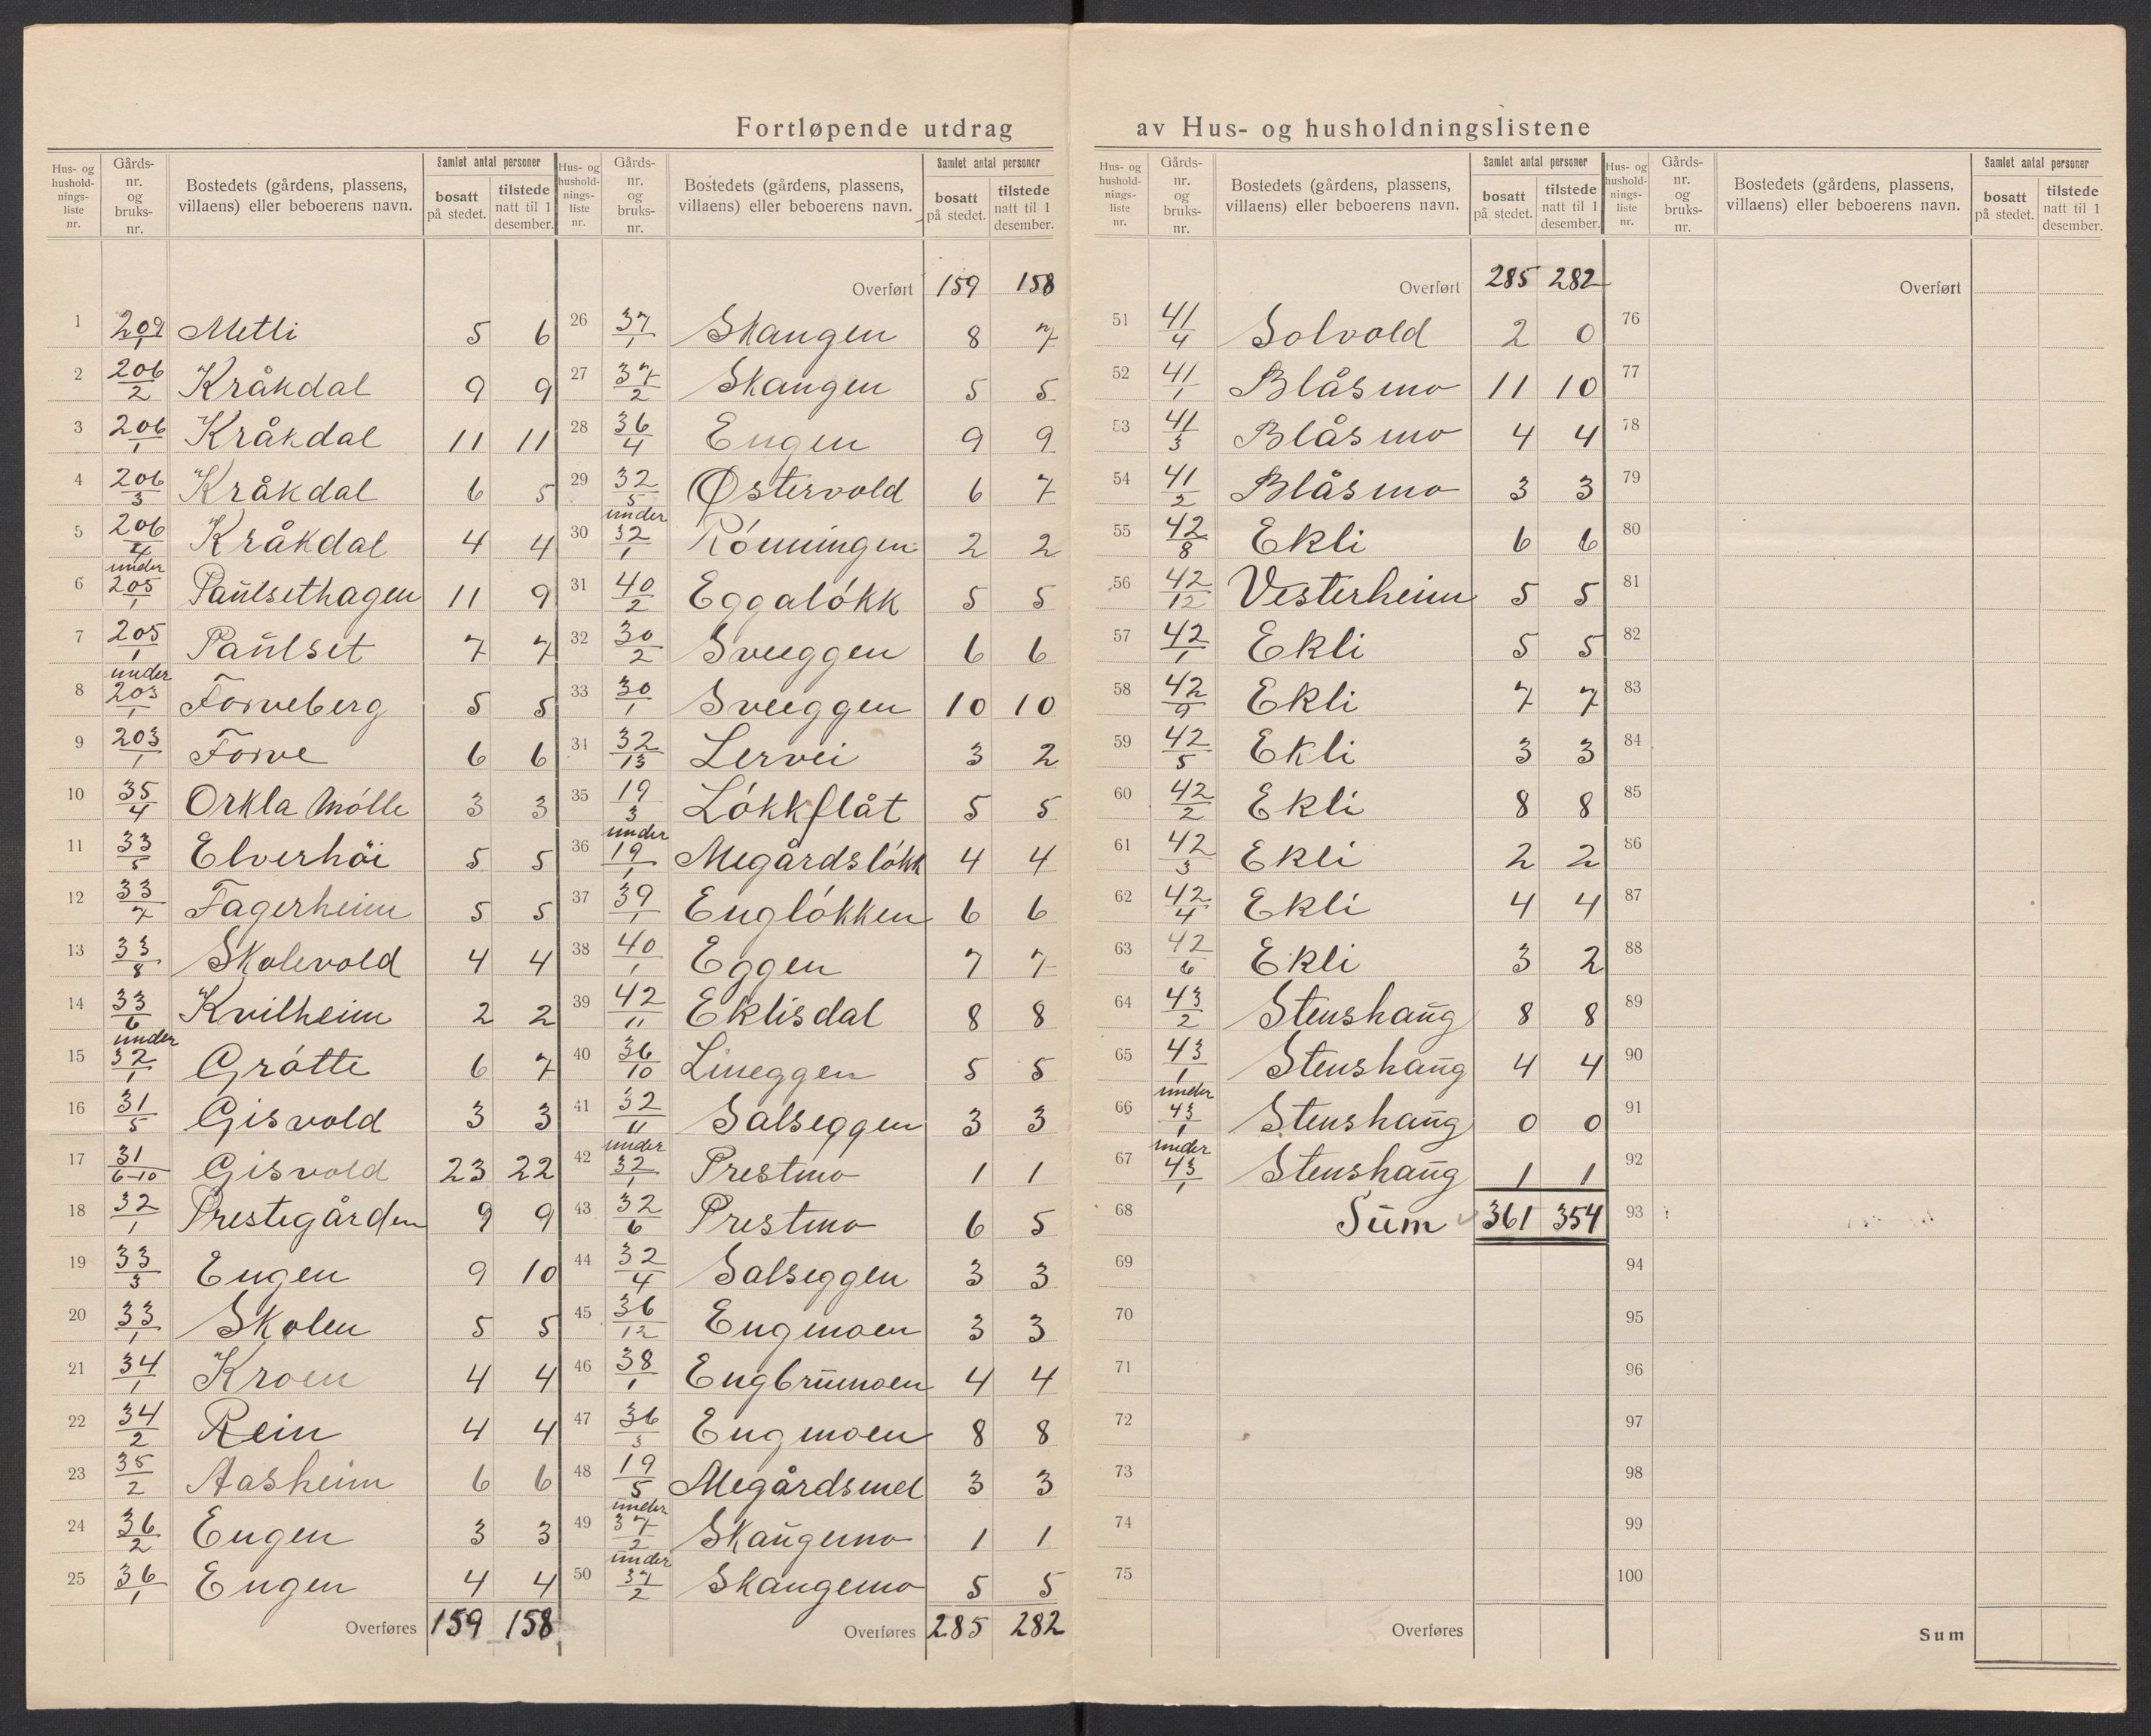 Fortløpende utdrag av Hus- og husholdningslistene
Hus- og husholdningsliste nr. | Gårdsnr. og bruksnr. | Bostedets (gårdens, plassens, villaens) eller beboerens navn. | Samlet antal personer: bosatt på stedet. | tilstede natt til 1 desember.
1 209/1 Metli 5 6
2 206/2 Kråkdal 9 9
3 206/1 Kråkdal 11 11
4 206/3 Kråkdal 6 5
5 206/4 Kråkdal 4 4
6 under 205/1 Paulsethagen 11 9
7 205/1 Paulset 7 7
8 under 203/1 Forveberg 5 5
9 203/1 Forve 6 6
10 35/4 Orkla Mólle 3 3
11 33/5 Elverhöi 5 5
12 33/7 Fagerheim 5 5
13 33/8 Skolevold 4 4
14 33/6 Kvilheim 2 2
15 under 32/1 Grótte 6 7
16 31/5 Gisvold 3 3
17 31/6-10 Gisvold 23 22
18 32/1 Prestegården 9 9
19 33/3 Engen 9 10
20 33/1 Skolen 5 5
21 34/1 Kroen 4 4
22 34/2 Rein 4 4
23 35/2 Aasheim 6 6
24 36/2 Engen 3 3
25 36/1 Engen 4 4
Overføres 159 158
Hus- og husholdningsliste nr. | Gårdsnr. og bruksnr. | Bostedets (gårdens, plassens, villaens) eller beboerens navn. | Samlet antal personer: bosatt på stedet. | tilstede natt til 1 desember.
Overført 159 158
26 37/1 Skangen 8 7
27 37/2 Skangen 5 5
28 36/4 Engen 9 9
29 32/5 Østervold 6 7
30 under 32/1 Rónningen 2 2
31 40/2 Eggalókk 5 5
32 30/2 Sveeggen 6 6
33 30/1 Sveeggen 10 10
34 32/13 Lervei 3 2
35 19/3 Lókkflåt 5 5
36 under 19/1 Megårdslókk 4 4
37 39/1 Englókken 6 6
38 40/1 Eggen 7 7
39 42/11 Eklisdal 8 8
40 36/10 Lineggen 5 5
41 32/11 Salseggen 3 3
42 under 32/1 Prestmo 1 1
43 32/6 Prestmo 6 5
44 32/4 Salseggen 3 3
45 36/12 Engmoen 3 3
46 38/1 Engbrumoen 4 4
47 36/3 Engmoen 8 8
48 19/5 Megårdsmel 3 3
49 under 37/2 Skaugemo 1 1
50 under 37/2 Skangemo 5 5
Overføres 285 282
Hus- og husholdningsliste nr. | Gårdsnr. og bruksnr. | Bostedets (gårdens, plassens, villaens) eller beboerens navn. | Samlet antal personer: bosatt på stedet. | tilstede natt til 1 desember.
Overført 285 282
51 41/4 Solvold 2 0
52 41/1 Blåsmo 11 10
53 41/3 Blåsmo 4 4
54 41/2 Blåsmo 3 3
55 42/8 Ekli 6 6
56 42/12 Vesterheim 5 5
57 42/1 Ekli 5 5
58 42/9 Ekli 7 7
59 42/5 Ekli 3 3
60 42/2 Ekli 8 8
61 42/3 Ekli 2 2
62 42/4 Ekli 4 4
63 42/6 Ekli 3 2
64 43/2 Stenshaug 8 8
65 43/1 Stenshaug 4 4
66 under 43/1 Stenshaug 0 0
67 under 43/1 Stenshaug 1 1
68 Sum 361 354
69
70
71
72
73
74
75
Overføres
Hus- og husholdningsliste nr. | Gårdsnr. og bruksnr. | Bostedets (gårdens, plassens, villaens) eller beboerens navn. | Samlet antal personer: bosatt på stedet. | tilstede natt til 1 desember.
Overført
76
77
78
79
80
81
82
83
84
85
86
87
88
89
90
91
92
93
94
95
96
97
98
99
100
Sum